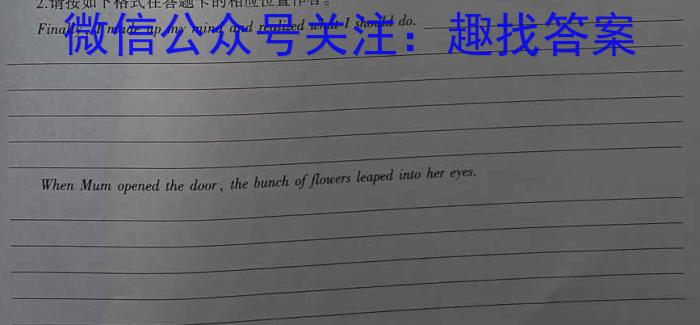 2.请按如下格式在答题卡的相应位置作答。
Finally, I made up my mind and realized what I should do.
微信公众号关注：趣找答案
When Mum opened the door, the bunch of flowers leaped into her eyes.